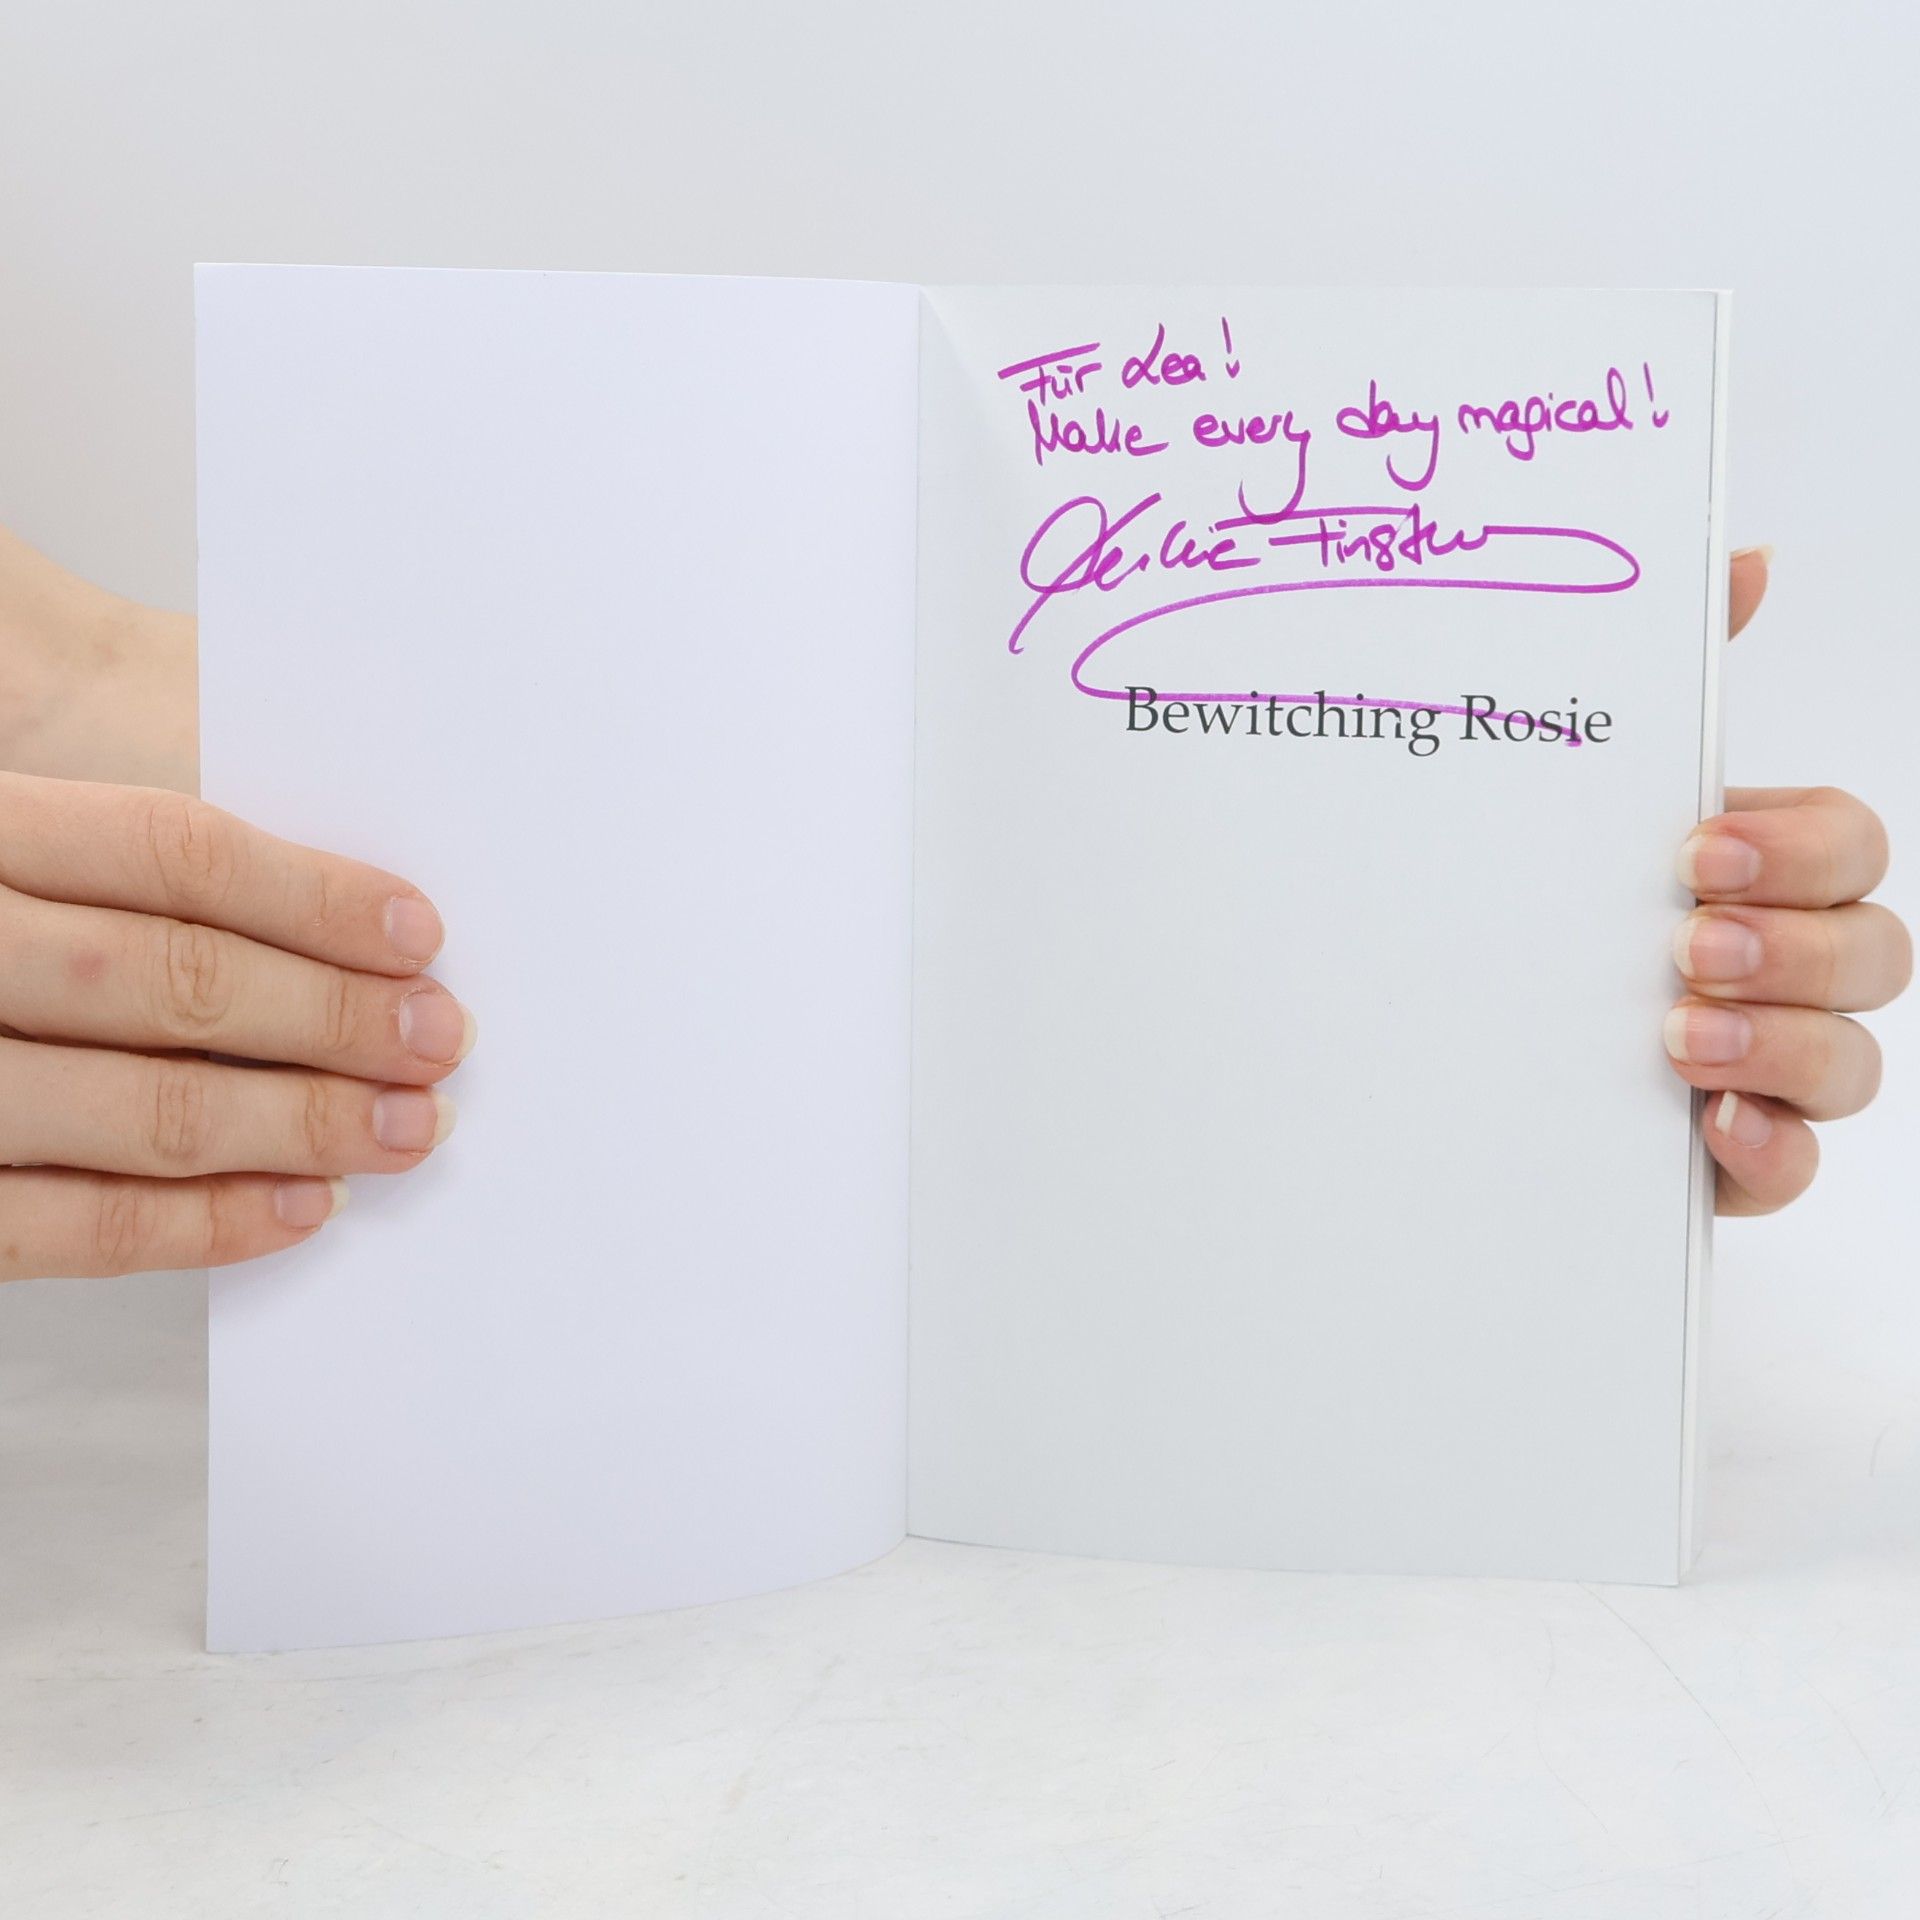 Für Lea!
Make every day magical!
Bewitching Rosie